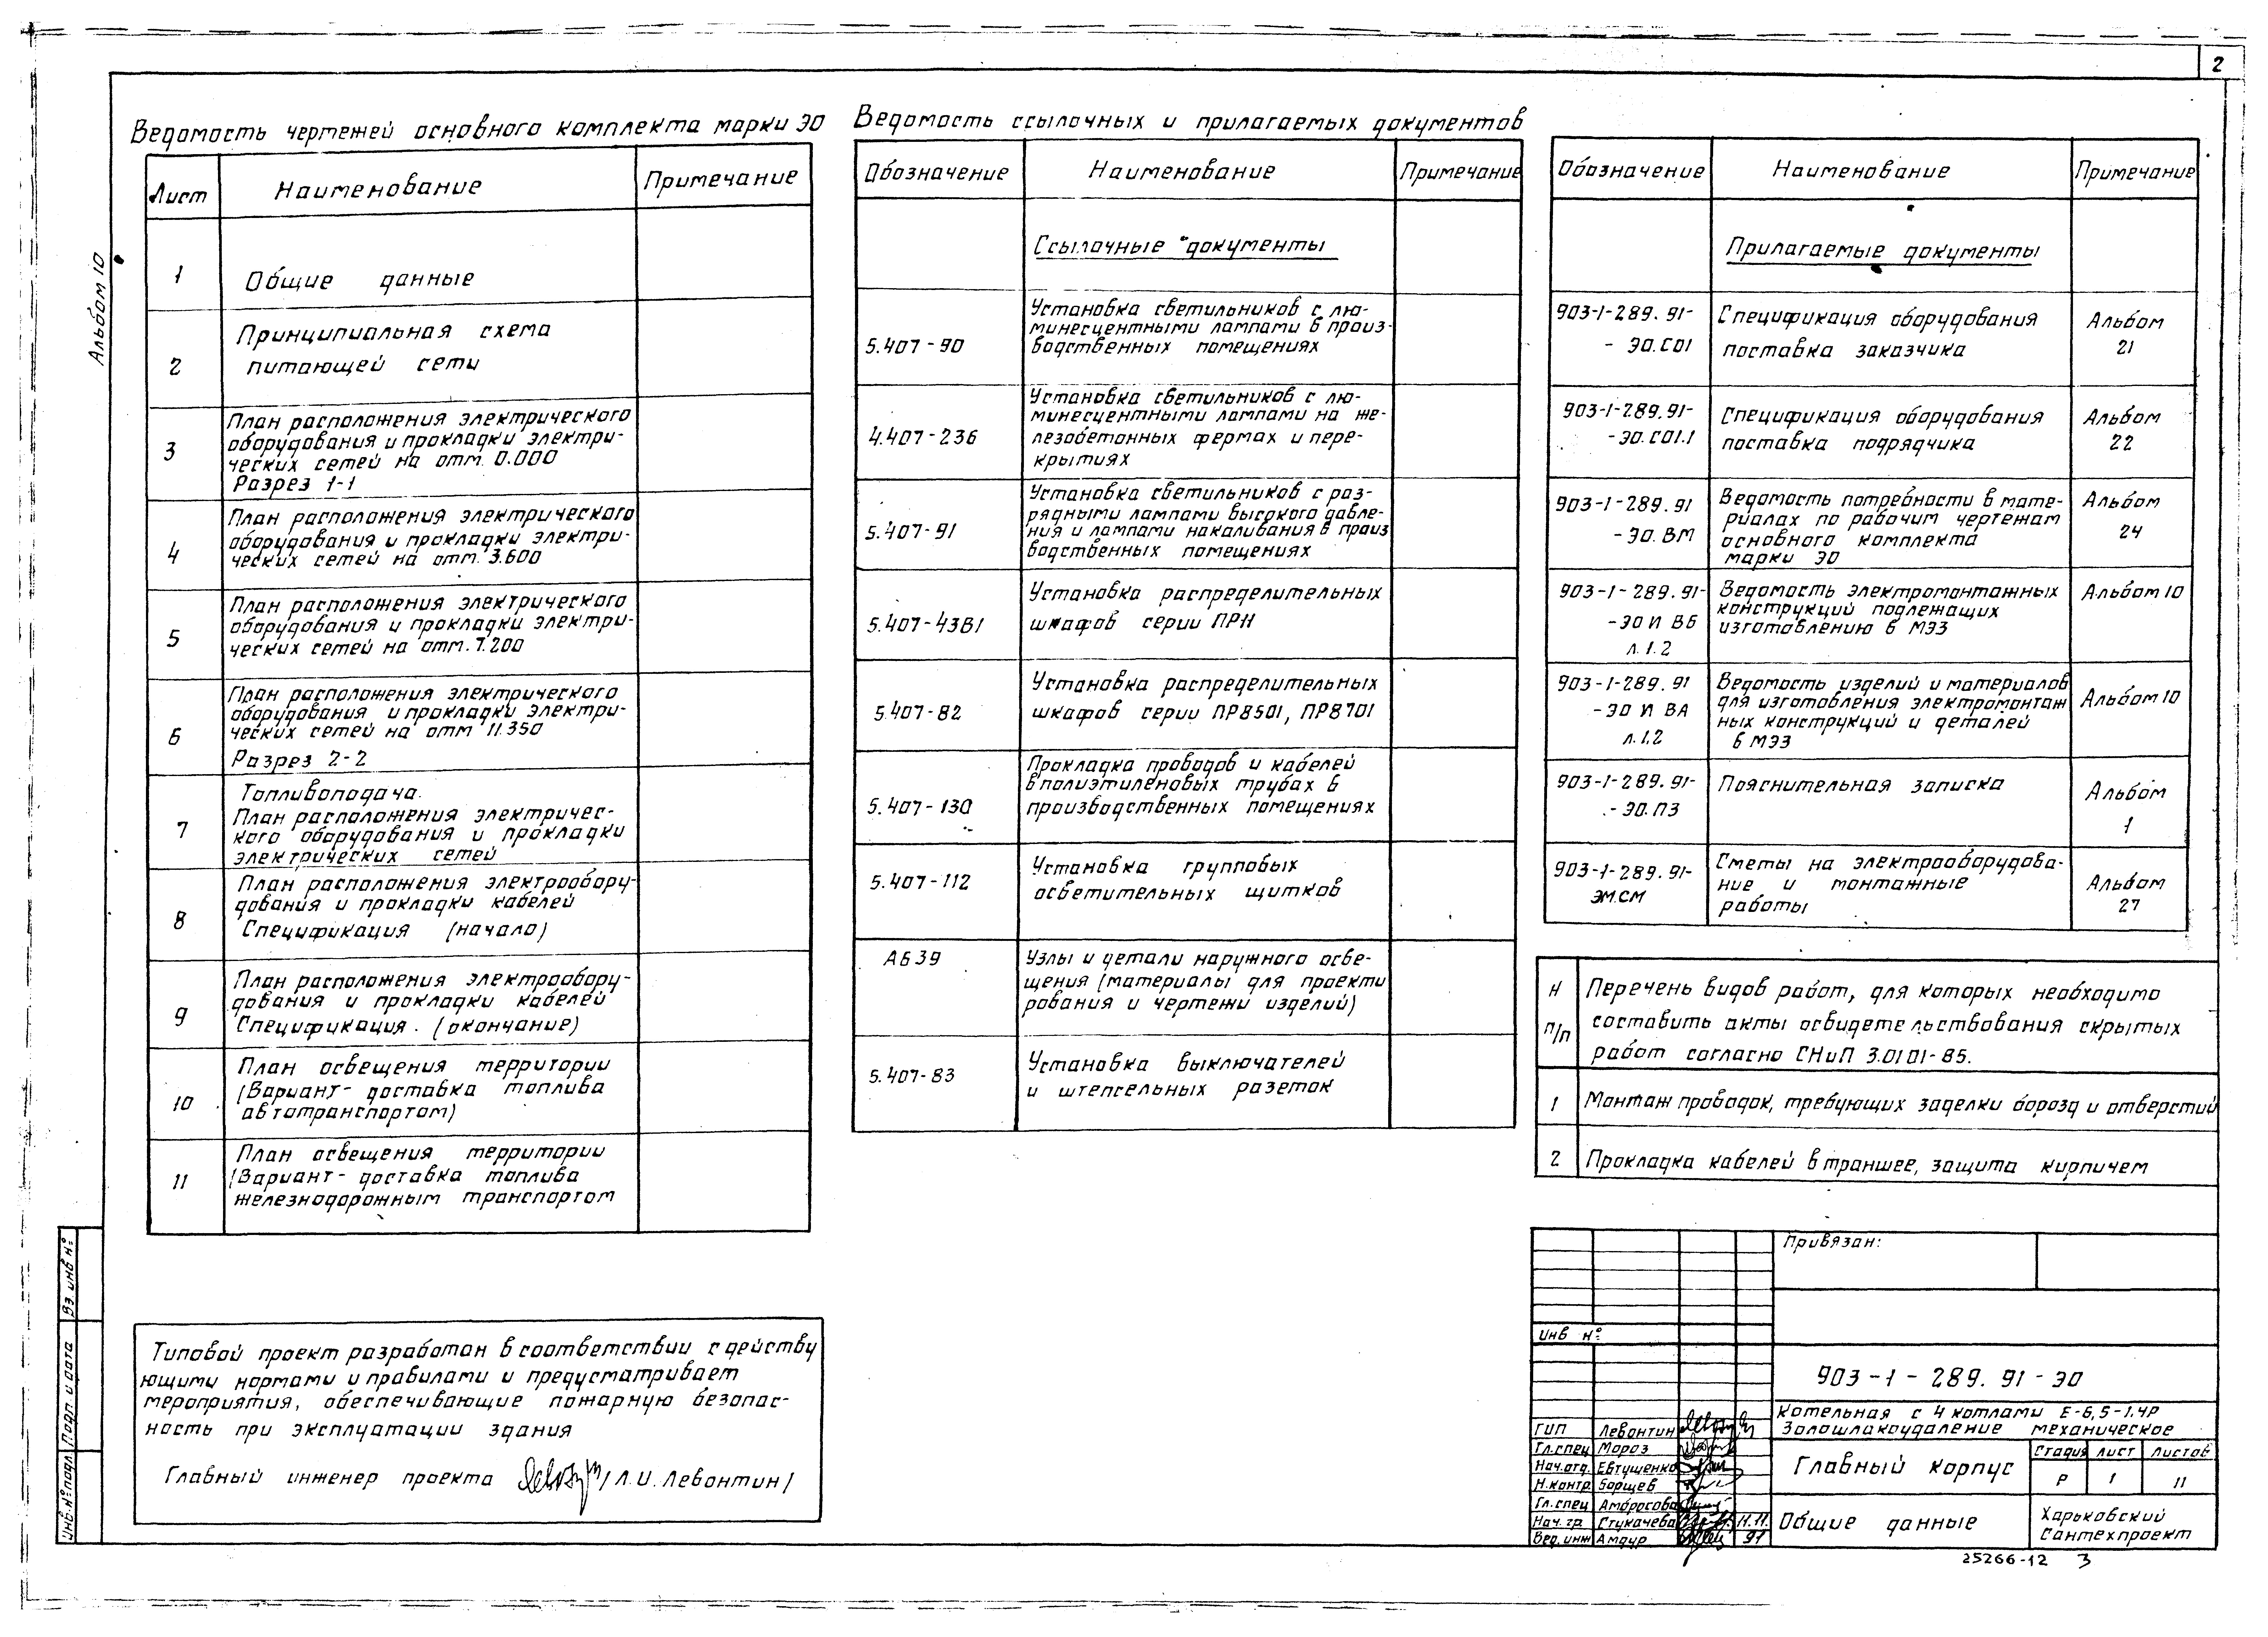 2
Альбом 10
Ведомость чертежей основного комплекта марки ЭО
Лист
Наименование
Примечание
1
Общие данные
2
Принципиальная схема
питающей сети
3
План расположения электрического
оборудования и прокладки электри-
ческих сетей на отм. 0.000
Разрез 1-1
4
План расположения электрического
оборудования и прокладки электри-
ческих сетей на отм. 3.600
5
План расположения электрического
оборудования и прокладки электри-
ческих сетей на отм. 7.200
6
План расположения электрического
оборудования и прокладки электри-
ческих сетей на отм 11.350
Разрез 2-2
7
Топливоподача.
План расположения электричес-
кого оборудования и прокладки
электрических сетей
8
План расположения электрообору-
дования и прокладки кабелей
Спецификация (начало)
9
План расположения электрообору-
дования и прокладки кабелей
Спецификация. (окончание)
10
План освещения территории
(Вариант- доставка топлива
автотранспортом)
11
План освещения территории
(Вариант- доставка топлива
железнодорожным транспортом
Ведомость ссылочных и прилагаемых документов
Обозначение
Наименование
Примечание
Ссылочные документы
5.407-90
Установка светильников с лю-
минесцентными лампами в произ-
водственных помещениях
4.407-236
Установка светильников с лю-
минесцентными лампами на же-
лезобетонных фермах и пере-
крытиях
5.407-91
Установка светильников с раз-
рядными лампами высокого давле-
ния и лампами накаливания в произ
водственных помещениях
5.407-43В1
Установка распределительных
шкафов серии ПРН
5.407-82
Установка распределительных
шкафов серии ПР8501, ПР8701
5.407-130
Прокладка проводов и кабелей
в полиэтиленовых трубах в
производственных помещениях
5.407-112
Установка групповых
осветительных щитков
А639
Узлы и детали наружного осве-
щения (материалы для проекти
рования и чертежи изделий)
5.407-83
Установка выключателей
и штепсельных разеток
Обозначение
Наименование
Примечание
Прилагаемые документы
903-1-289.91-
- ЭО.СО1
Спецификация оборудования
поставка заказчика
Альбом
21
903-1-289.91-
-ЭО.СО1.1
Спецификация оборудования
поставка подрядчика
Альбом
22
903-1-289.91
-ЭО.ВМ
Ведомость потребности в мате-
риалах по рабочим чертежам
основного комплекта
марки ЭО
Альбом
24
903-1-289.91-
-ЭО И ВБ
л.1.2
Ведомость электромонтажных
конструкций подлежащих
изготовлению в МЭЗ
Альбом 10
903-1-289.91
-ЭО И ВА
л.1,2
Ведомость изделий и материалов
для изготовления электромонтаж
ных конструкций и деталей
в МЭЗ
Альбом 10
903-1-289.91-
- ЭО.ПЗ
Пояснительная записка
Альбом
1
903-1-289.91-
ЭМ.СМ
Сметы на электрооборудова-
ние и монтажные
работы
Альбом
27
Н
п/п
Перечень видов работ, для которых необходимо
составить акты освидетельствования скрытых
работ согласно СНиП 3.01.01-85.
1
Монтаж проводок, требующих заделки борозд и отверстий
2
Прокладка кабелей в траншее, защита кирпичем
Типовой проект разработан в соответствии с действу
ющими нормами и правилами и предусматривает
мероприятия, обеспечивающие пожарную безопас-
ность при эксплуатации здания
Главный инженер проекта /Л.И. Левонтин/
Вз. инв №
Подп. и дата
Инв. № подл
Привязан:
Инв №
903-1-289.91-ЭО
Котельная с 4 котлами Е-6,5-1.4Р
Золошлакоудаление механическое
ГИП Левонтин
Гл.спец Мороз
Нач.отд. Евтушенко
Н.контр. Борщев
Гл.спец Амбросова
Нач. гр. Стукачева 11.11.
Вед. инж Амдур 91
Главный корпус
Стадия Лист Листов
Р 1 11
Общие данные
Харьковский
Сантехпроект
25266-12 3